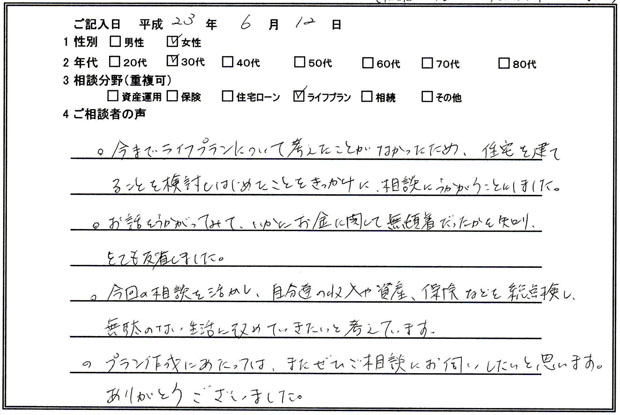 ご記入日 平成 23 年 6 月 12 日
1 性別 □男性 ☑女性
2 年代 □20代 ☑30代 □40代 □50代 □60代 □70代 □80代
3 相談分野(重複可)
□資産運用 □保険 □住宅ローン ☑ライフプラン □相続 □その他
4 ご相談者の声
。今までライフプランについて考えたことがなかったため、住宅を建て
ることを検討しはじめたことをきっかけに、相談にうかがうことにしました。
。お話をうかがってみて、いかにお金に関して無頓着だったかを知り、
とても反省しました。
。今回の相談を活かし、自分達の収入や資産、保険などを総点検し、
無駄のない生活に改めていきたいと考えています。
。プラン作成にあたっては、またぜひご相談にお伺いしたいと思います。
ありがとうございました。